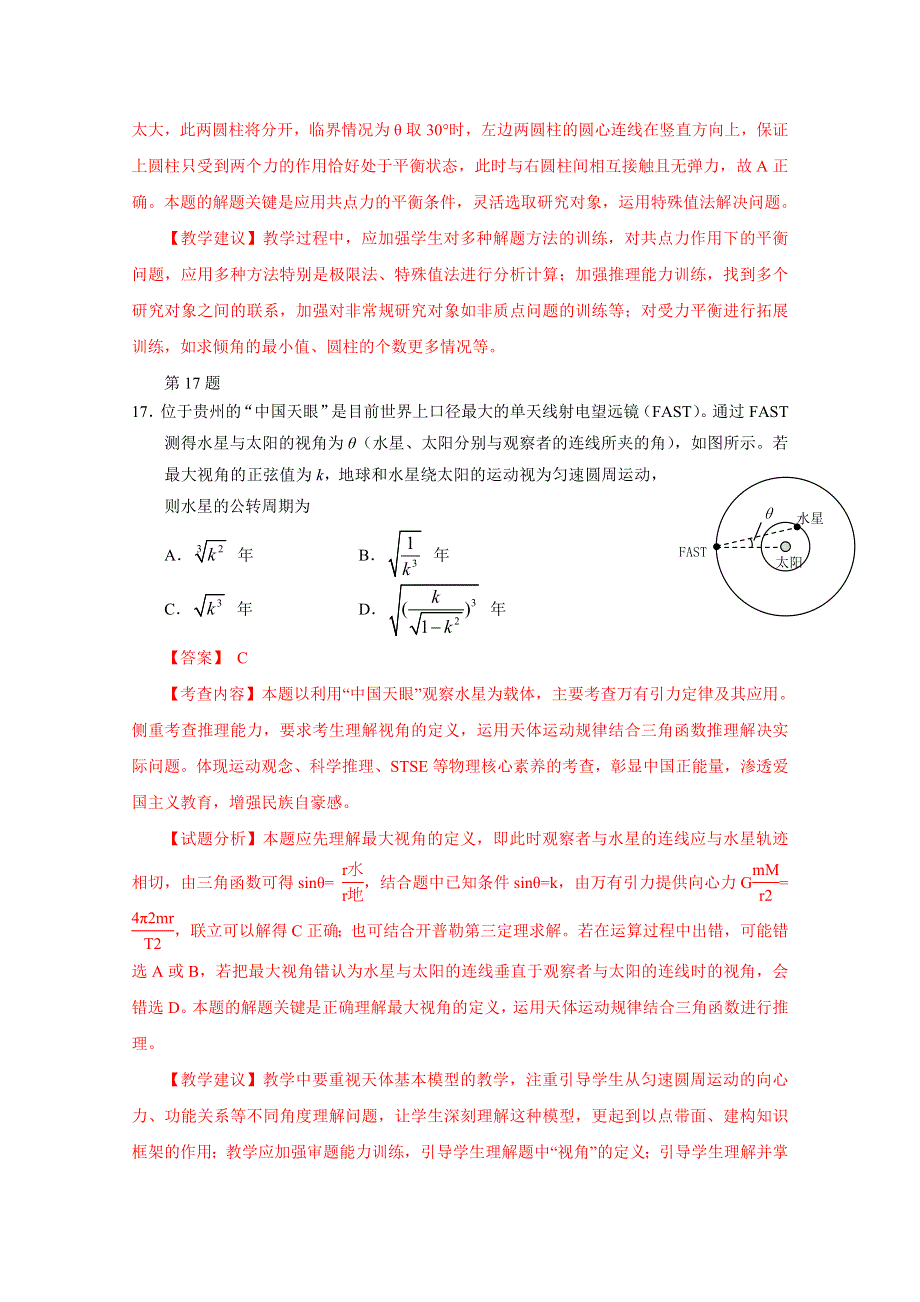 太大，此两圆柱将分开，临界情况为 θ 取 30°时，左边两圆柱的圆心连线在竖直方向上，保证
上圆柱只受到两个力的作用恰好处于平衡状态，此时与右圆柱间相互接触且无弹力，故 A 正
确。本题的解题关键是应用共点力的平衡条件，灵活选取研究对象，运用特殊值法解决问题。
【教学建议】教学过程中，应加强学生对多种解题方法的训练，对共点力作用下的平衡
问题，应用多种方法特别是极限法、特殊值法进行分析计算；加强推理能力训练，找到多个
研究对象之间的联系，加强对非常规研究对象如非质点问题的训练等；对受力平衡进行拓展
训练，如求倾角的最小值、圆柱的个数更多情况等。
第 17 题
17．位于贵州的“中国天眼”是目前世界上口径最大的单天线射电望远镜（FAST）。通过 FAST
测得水星与太阳的视角为 θ（水星、太阳分别与观察者的连线所夹的角），如图所示。若
最大视角的正弦值为 k，地球和水星绕太阳的运动视为匀速圆周运动，
则水星的公转周期为
A．∛k² 年 B．√(1/k³) 年
C．√k³ 年 D．√((k/√(1−k²))³) 年
θ
水星
FAST
太阳
【答案】 C
【考查内容】本题以利用“中国天眼”观察水星为载体，主要考查万有引力定律及其应用。
侧重考查推理能力，要求考生理解视角的定义，运用天体运动规律结合三角函数推理解决实
际问题。体现运动观念、科学推理、STSE 等物理核心素养的考查，彰显中国正能量，渗透爱
国主义教育，增强民族自豪感。
【试题分析】本题应先理解最大视角的定义，即此时观察者与水星的连线应与水星轨迹
相切，由三角函数可得 sinθ= r水/r地，结合题中已知条件 sinθ=k，由万有引力提供向心力 G mM/r2=
4π2mr/T2，联立可以解得 C 正确；也可结合开普勒第三定理求解。若在运算过程中出错，可能错
选 A 或 B，若把最大视角错认为水星与太阳的连线垂直于观察者与太阳的连线时的视角，会
错选 D。本题的解题关键是正确理解最大视角的定义，运用天体运动规律结合三角函数进行推
理。
【教学建议】教学中要重视天体基本模型的教学，注重引导学生从匀速圆周运动的向心
力、功能关系等不同角度理解问题，让学生深刻理解这种模型，更起到以点带面、建构知识
框架的作用；教学应加强审题能力训练，引导学生理解题中“视角”的定义；引导学生理解并掌